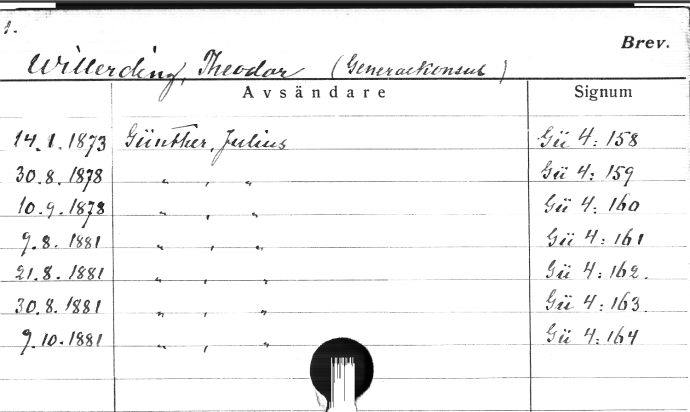 1.
Brev.
Willerding, Theodor (Generalkonsul)
Avsändare Signum
14.1.1873 Günther, Julius Gü 4:158
30.8.1878 " , " Gü 4:159
10.9.1878 " , " Gü 4:160
9.8.1881 " , " Gü 4:161
21.8.1881 " , " Gü 4:162.
30.8.1881 " , " Gü 4:163.
9.10.1881 " , " Gü 4:164